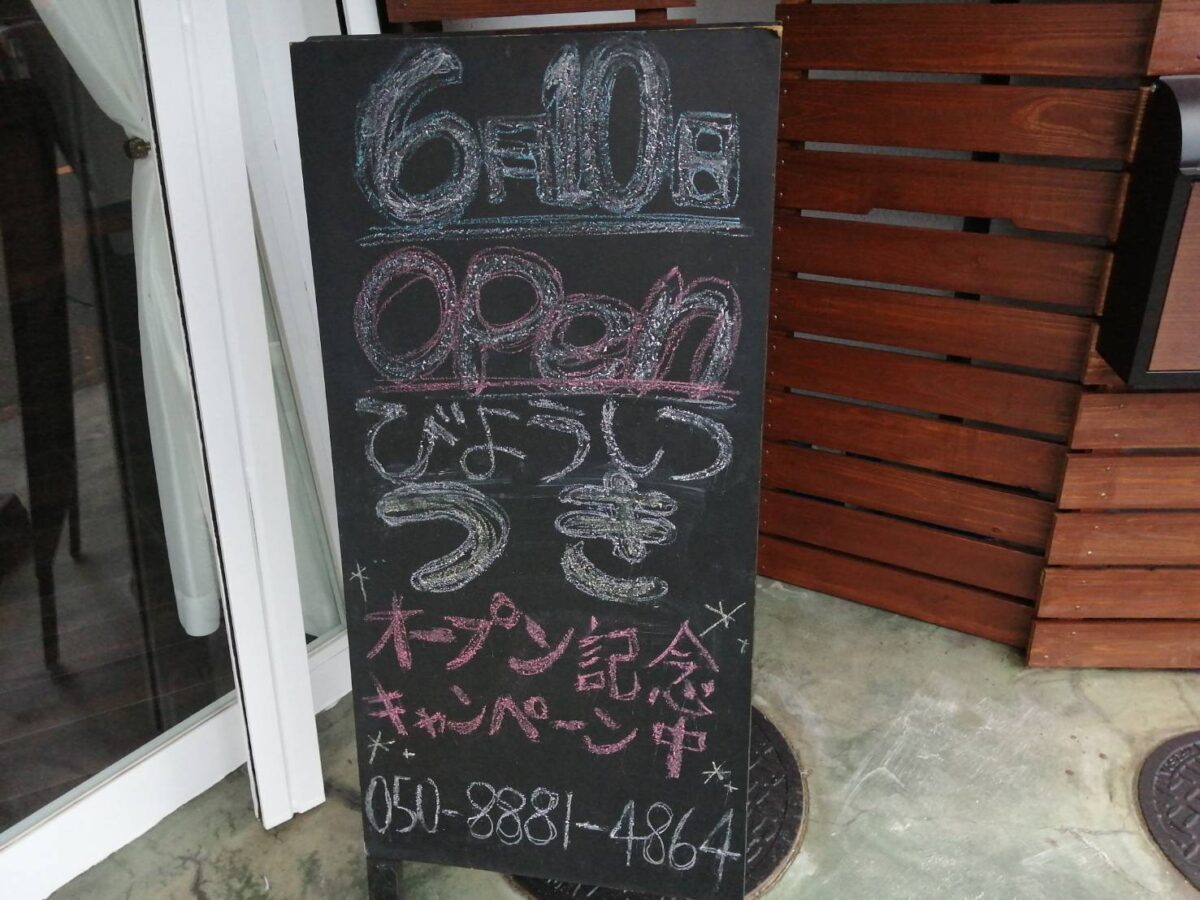 6月10日
OPen
びようしつ
つき
オープン記念
キャンペーン中
050-8881-4864